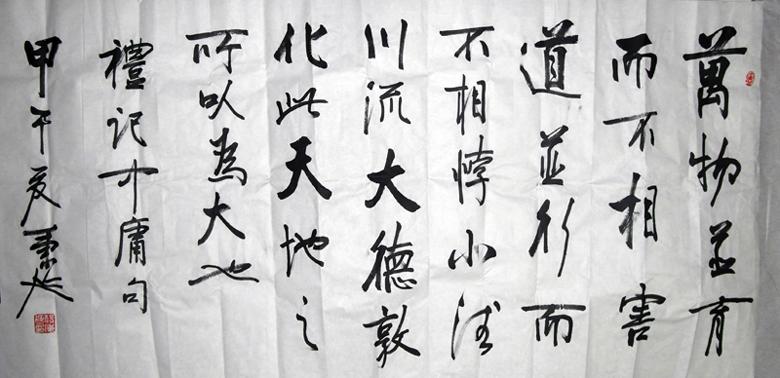 萬物並育
而不相害
道並行而
不相悖小德
川流大德敦
化此天地之
所以為大也
禮記中庸句
甲午夏